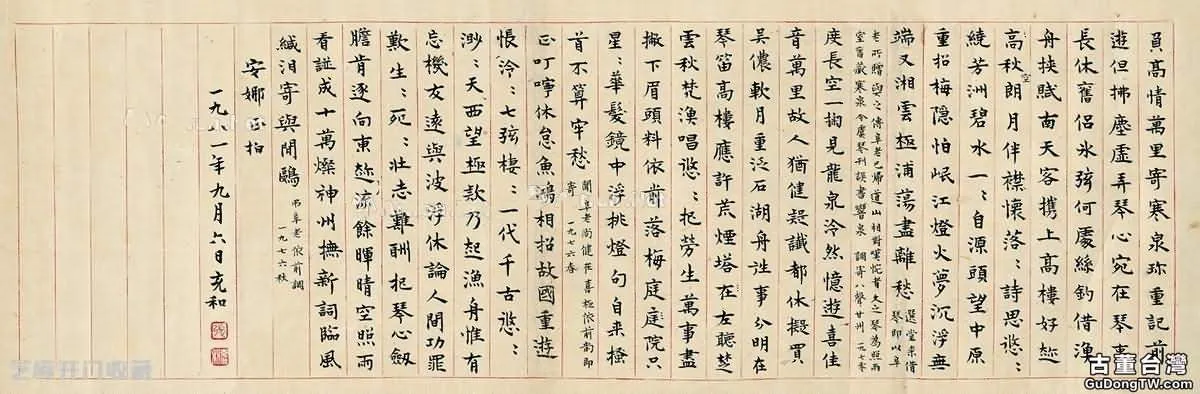 負高情萬里寄寒泉珎重記前
遊但拂塵虛弄琴心宛在琴事
長休舊侶氷弦何處絲釣借漁
舟挾賦南天客攜上高樓好趂
高秋空朗月伴襟懷落:詩思悠:
繞芳洲碧水一:自源頭望中原
重招梅隱怕岷江燈火夢沉浮無
端又湘雲極浦蕩盡離愁 選堂索借
琴即以阜
老所贈與之傳阜老已歸道山相對驚惋者久之琴為照雨
室舊藏寒泉今虞琴刊誤書響泉 調寄八聲甘州 一九七零
度長空一掬見龍泉泠然憶遊喜佳
音萬里故人猶健疑讖都休擬買
吳儂軟月重泛石湖舟往事分明在
琴笛高樓應許荒煙塔在左聽芝
雲秋梵漁唱悠:把勞生萬事盡
撇下眉頭料依前落梅庭院只
星:華髮鏡中浮挑燈句自来搔
首不算牢愁 聞阜老尚健在喜極依前韵即
寄 一九七六春
正叮嚀休怠魚鴻相招故國重遊
悵泠:七弦棲:一代千古悠:
渺:天西望極欵乃起漁舟惟有
忘機友遠與波浮休論人間功罪
歎生:死:壯志難酬把琴心劍
膽肯逐向東趂流餘暉晴空照雨
看謎成十萬燦神州撫新詞臨風
緘泪寄與閒鷗 弔阜老依前調
一九七六秋
安娜正拍
一九八一年九月六日充和
古董台灣
GuDongTW.com